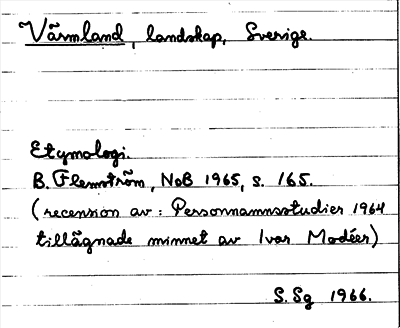 Värmland, landskap, Sverige.
Etymologi.
B. Flemström, NoB 1965, s. 165.
(recension av: Personnamnsstudier 1964
tillägnade minnet av Ivar Modéer)
S. Sg 1966.